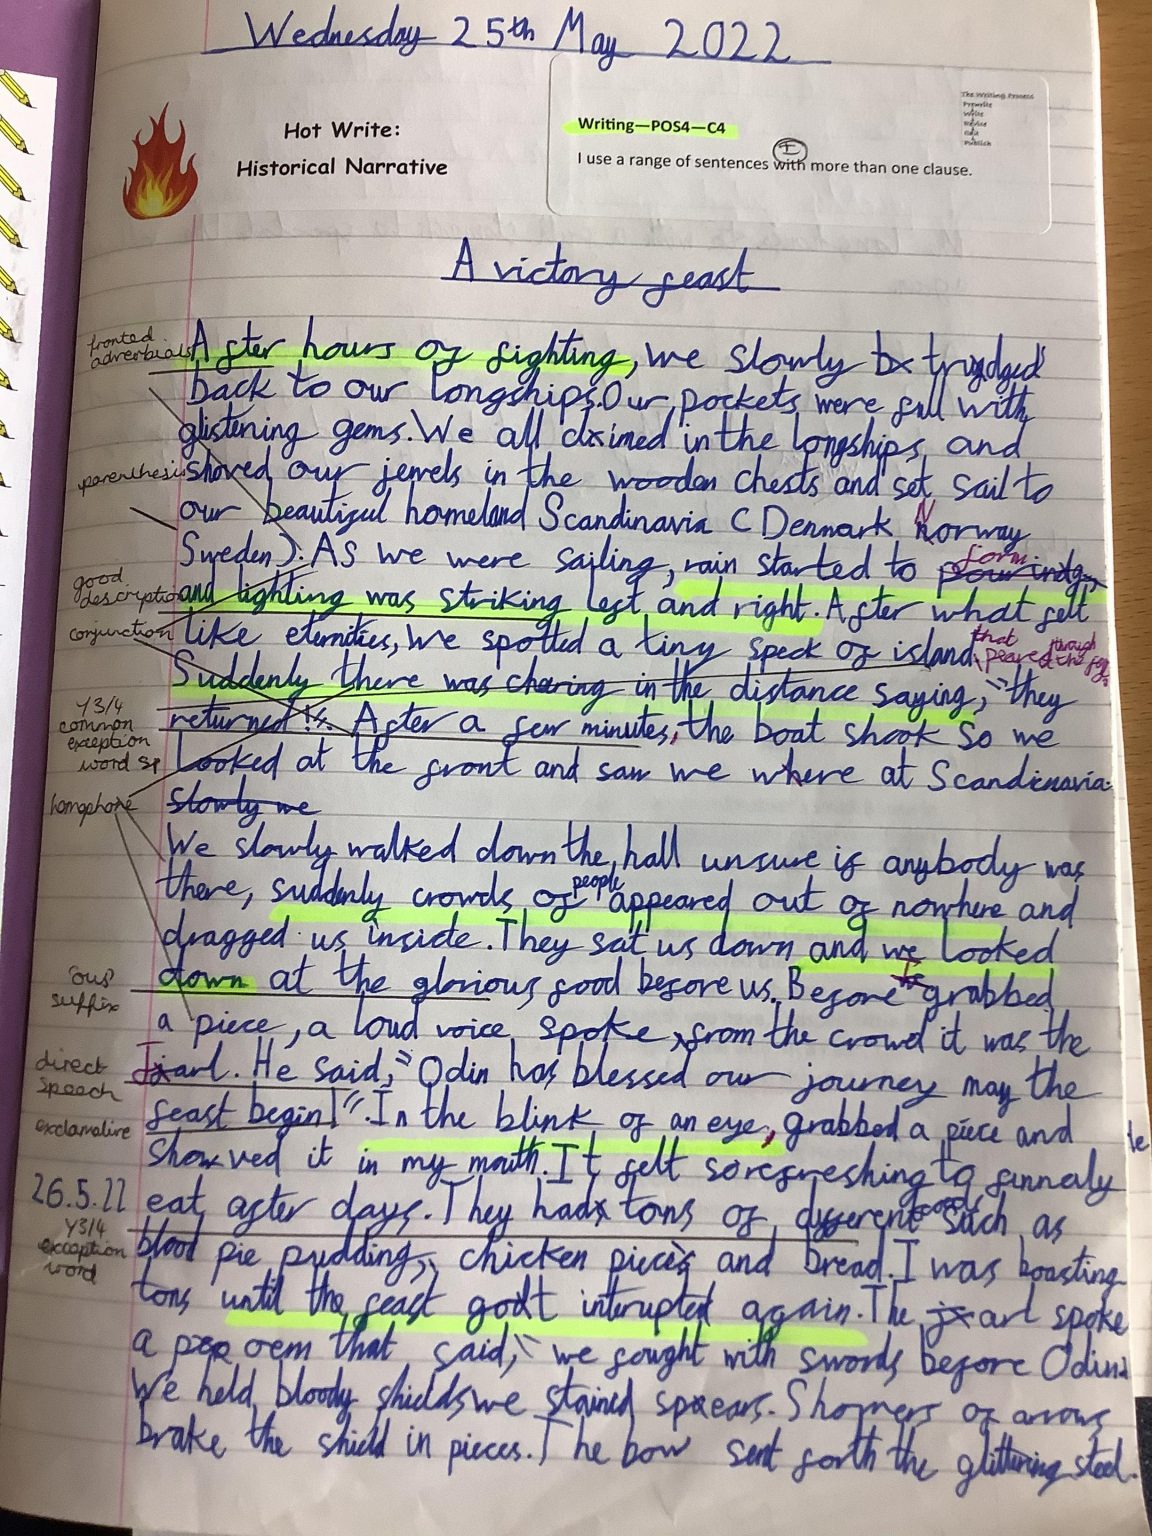 Wednesday 25th May 2022
Hot Write:
Historical Narrative
Writing—POS4—C4
I
I use a range of sentences with more than one clause.
The Writing Process
Prewrite
Write
Revise
Edit
Publish
A victory feast
fronted adverbials
After hours of fighting, we slowly trudged
back to our longships. Our pockets were full with
glistening gems. We all climed in the longships, and
parenthesis
shoved our jewels in the wooden chests and set sail to
our beautiful homeland Scandinavia (Denmark Norway
Sweden). As we were sailing, rain started to form
good description
and lighting was striking left and right. After what felt
conjunction
like eternities, we spotted a tiny speck of island that peared through the fog.
Suddenly there was chering in the distance saying, "they
Y3/4 common exception word sp
returned!". After a few minutes, the boat shook so we
looked at the front and saw we where at Scandinavia.
homophone
slowly we
We slowly walked down the hall unsure if anybody was
there, suddenly crowds of people appeared out of nowhere and
dragged us inside. They sat us down and we looked
'ous' suffix
down at the glorious food before us. Before I grabbed
a piece, a loud voice spoke, from the crowd it was the
direct speech
Jarl. He said, "Odin has blessed our journey may the
exclamative
feast begin!". In the blink of an eye, grabbed a piece and
shoved it in my mouth. It felt so refreshing to finnaly
26.5.22
eat after days. They had tons of different foods such as
Y3/4 exception word
blood pie pudding, chicken pieces and bread. I was boasting
tons until the feast got interupted again. The jarl spoke
a poem that said, "we fought with swords before Odin.
We held bloody shields we stained spears. Showers of arrows
brake the shield in pieces. The bow sent forth the glittering steel.